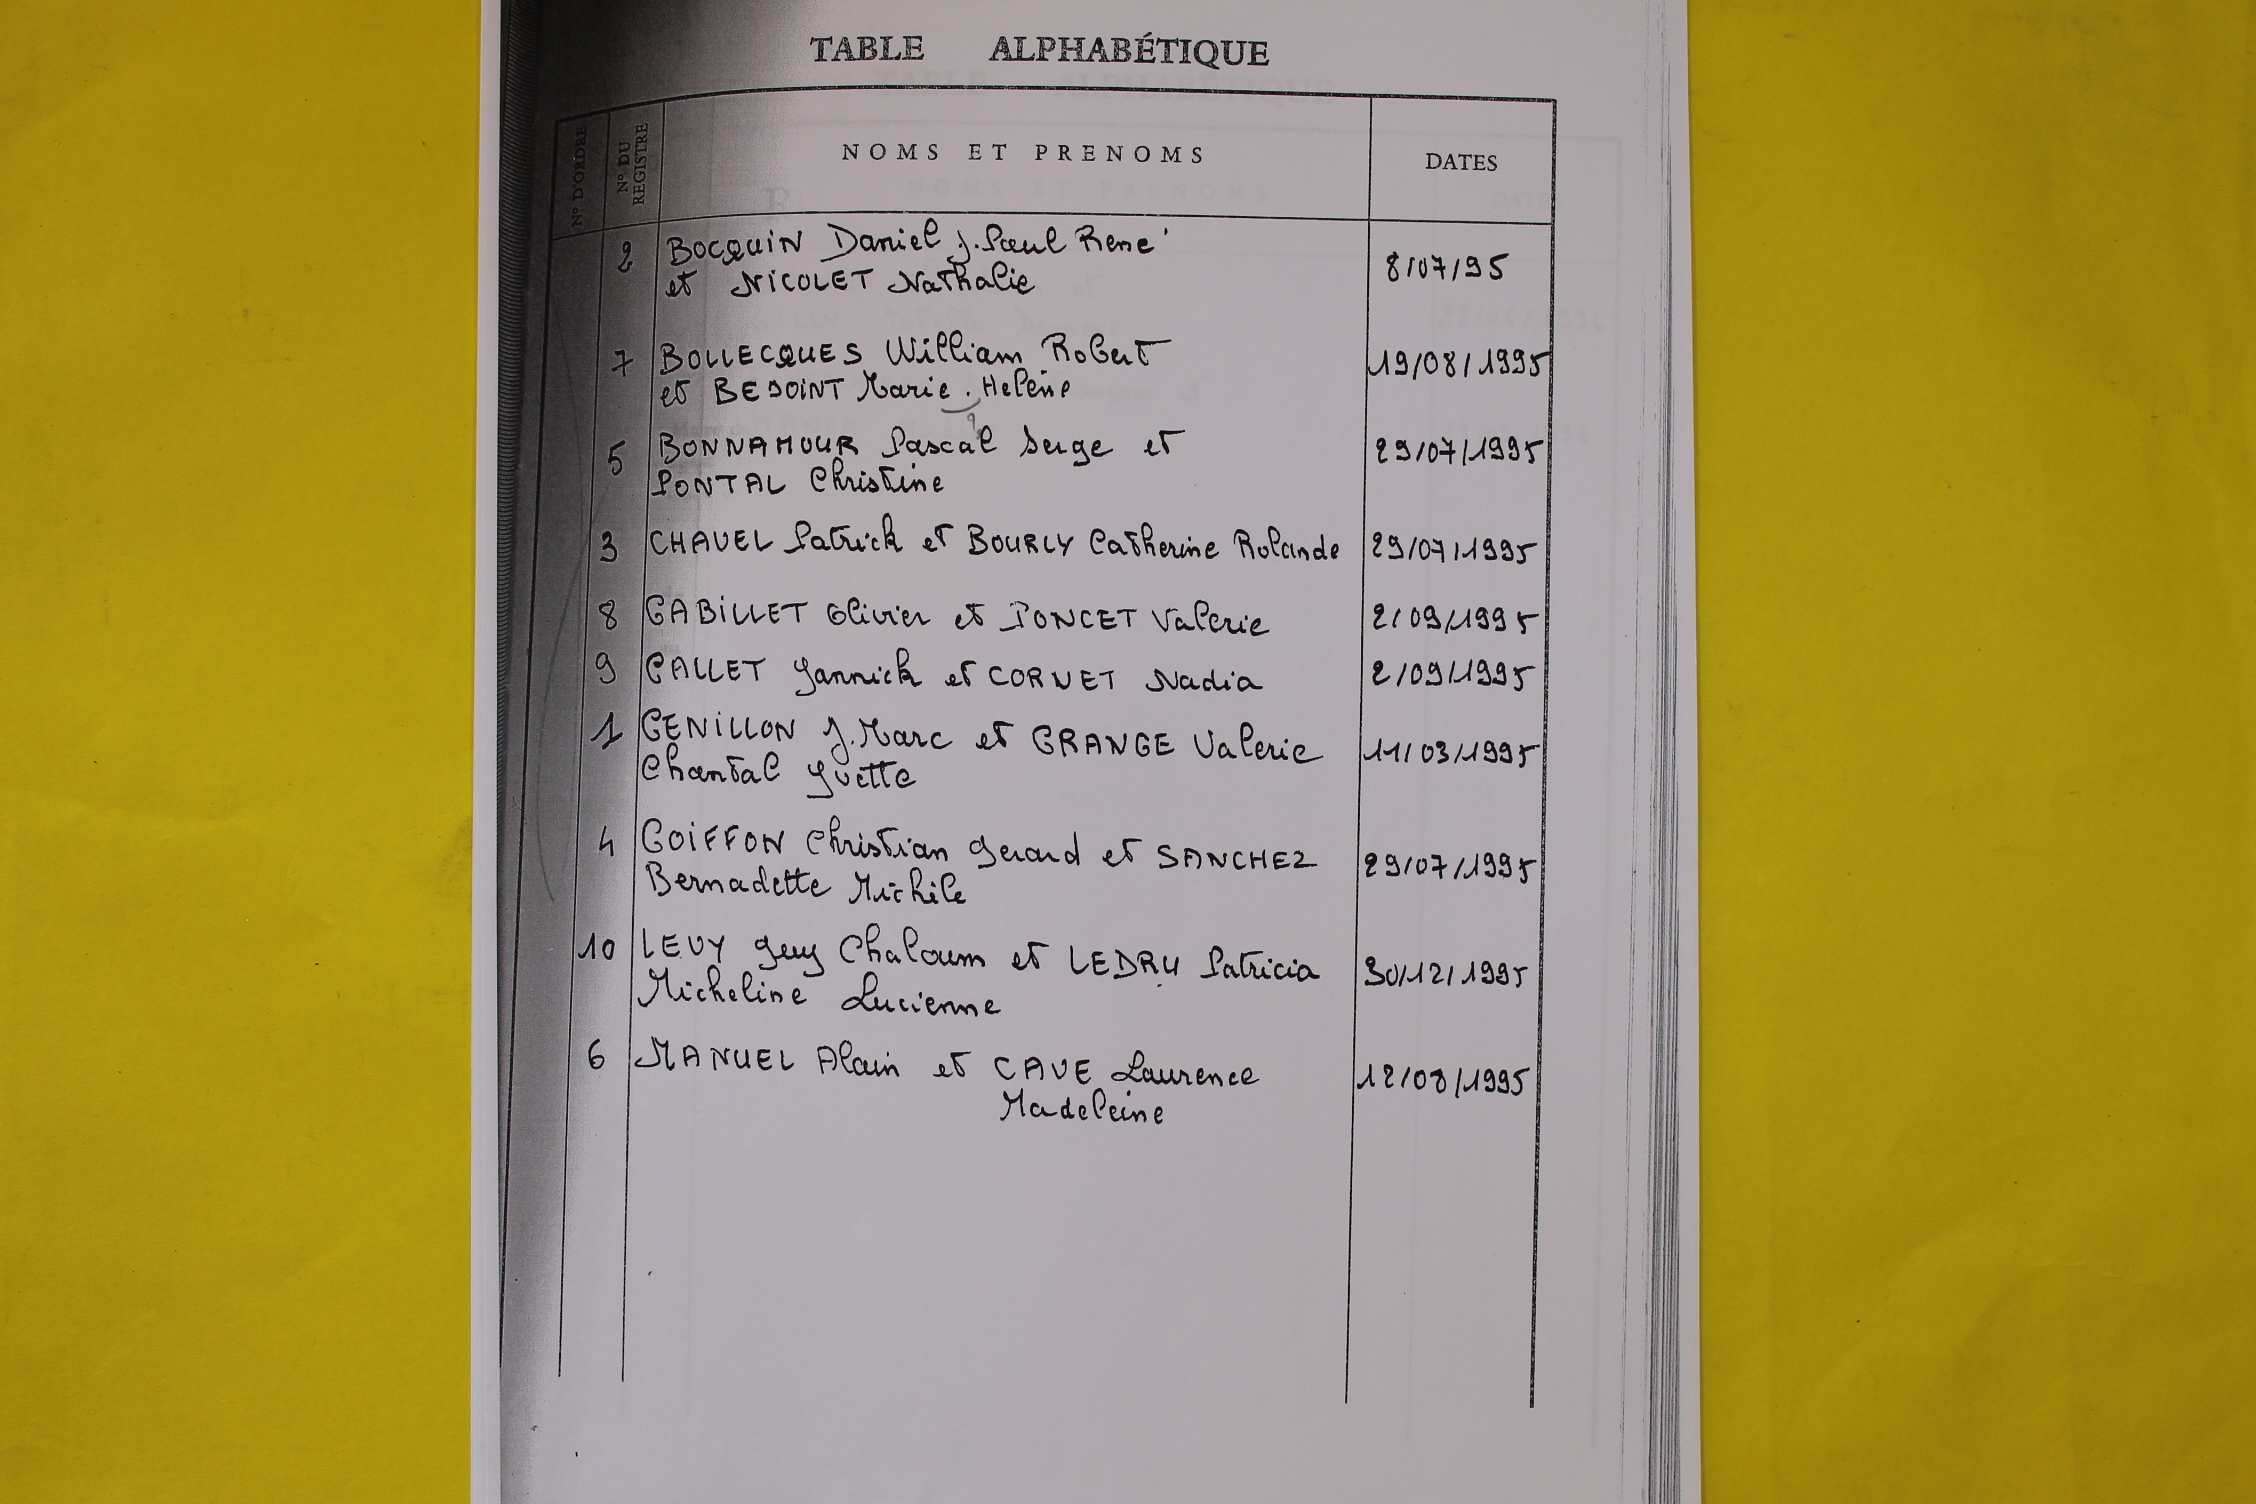 TABLE ALPHABÉTIQUE
N° D'ORDRE
N° DU REGISTRE
NOMS ET PRENOMS
DATES
2 BOCQUIN Daniel J. Paul René 8/07/95
et NICOLET Nathalie
7 BOLLECQUES William Robert 19/08/1995
et BEDOINT Marie. Helène
5 BONNAMOUR Pascal Serge et 29/07/1995
PONTAL Christine
3 CHAVEL Patrick et BOURLY Catherine Rolande 29/07/1995
8 GABILLET Olivier et PONCET Valerie 2/09/1995
9 GALLET Yannick et CORNET Nadia 2/09/1995
1 GENILLON J. Marc et GRANGE Valerie 11/03/1995
Chantal Yvette
4 GOIFFON Christian Gerard et SANCHEZ 29/07/1995
Bernadette Michèle
10 LEVY Guy Chaloum et LEDRU Patricia 30/12/1995
Micheline Lucienne
6 MANUEL Alain et CAVE Laurence 12/08/1995
Madeleine